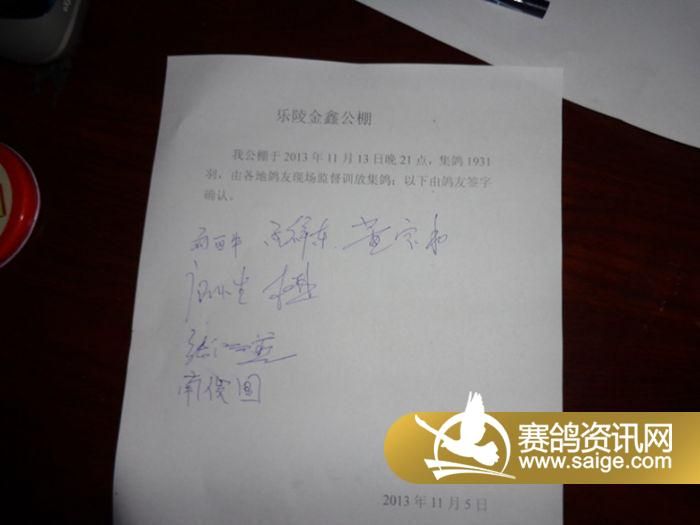 乐陵金鑫公棚
我公棚于 2013 年 11 月 13 日晚 21 点，集鸽 1931
羽，由各地鸽友现场监督训放集鸽；以下由鸽友签字
确认。
黄宗和
南俊国
2013 年 11 月 5 日
赛鸽资讯网
www.saige.com